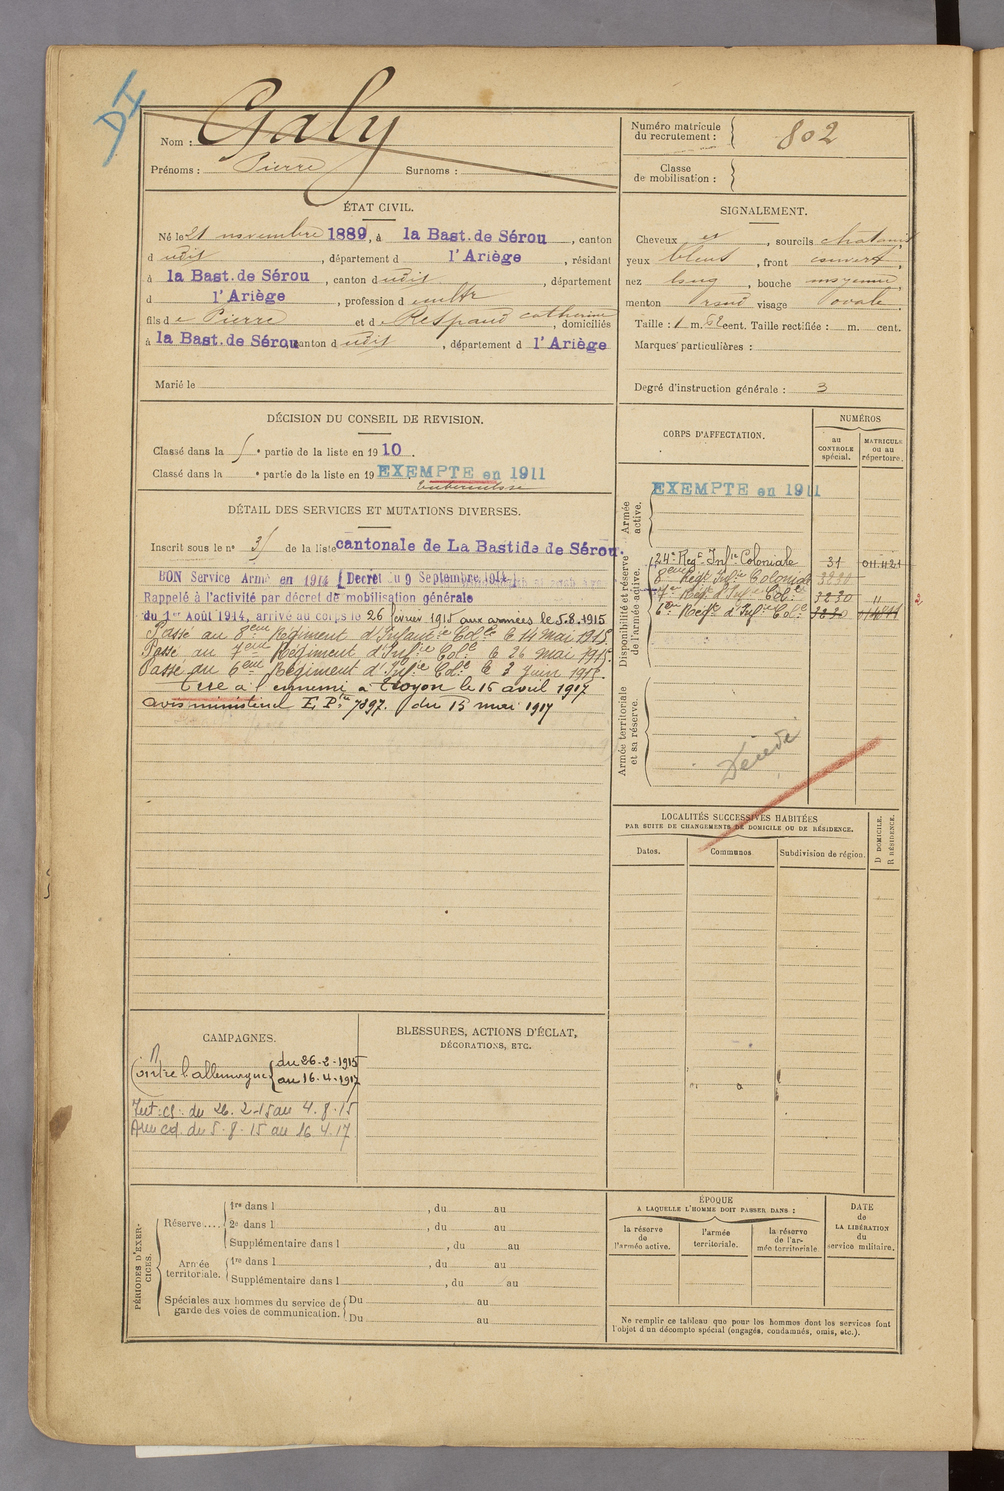 DI
Nom : Galy
Prénoms : Pierre Surnoms :
Numéro matricule du recrutement : 802
Classe de mobilisation :
ÉTAT CIVIL.
Né le 21 novembre 1889, à la Bast. de Sérou, canton
d udit, département d l'Ariège, résidant
à la Bast. de Sérou, canton dudit, département
d l'Ariège, profession d
fils de Pierre et de Respaud Catherine, domiciliés
à la Bast. de Sérou canton dudit, département d l'Ariège
Marié le
SIGNALEMENT.
Cheveux et, sourcils chatains
yeux bleus, front couvert,
nez long, bouche moyenne,
menton rond visage ovale.
Taille : 1 m. cent. Taille rectifiée : m. cent.
Marques particulières :
Degré d'instruction générale : 3
DÉCISION DU CONSEIL DE REVISION.
Classé dans la e partie de la liste en 1910.
Classé dans la e partie de la liste en 19 EXEMPTE en 1911
DÉTAIL DES SERVICES ET MUTATIONS DIVERSES.
Inscrit sous le n° 31 de la liste cantonale de La Bastide de Sérou.
BON Service Armé en 1914 (Décret du 9 Septembre 1914)
Rappelé à l'activité par décret de mobilisation générale
du 1er Août 1914, arrivé au corps le 26 février 1915 aux armées le 5.8.1915
Passé au 8eme Régiment d'Infanterie Colle le 14 Mai 1915
Passé au 7eme Régiment d'Infie Cole le 26 mai 1915.
Passé au 6eme Régiment d'Infie Cole le 3 Juin 1915.
Tué à l'ennemi à Troyon le 16 avril 1917
avis ministériel E. P. 7897. du 15 mai 1917
CORPS D'AFFECTATION.
NUMÉROS
au CONTROLE spécial.
MATRICULE ou au répertoire.
Armée active.
EXEMPTE en 1911
Disponibilité et réserve de l'armée active.
24e Regt Infie Coloniale 31 011.421
8eme Regt Infie Coloniale 3230
7e Regt d'Infie Cole 3230 "
6eme Regt d'Infie Cole 3230
Armée territoriale et sa réserve.
Décédé
LOCALITÉS SUCCESSIVES HABITÉES
PAR SUITE DE CHANGEMENTS DE DOMICILE OU DE RÉSIDENCE.
Dates. Communes Subdivision de région. D DOMICILE. R RÉSIDENCE.
CAMPAGNES.
Contre l'allemagne du 26-2-1915
au 16-4-1917
Int. cs. du 26.2-15 au 4.8.15
Armées. du 5.8.15 au 16.4.17
BLESSURES, ACTIONS D'ÉCLAT,
DÉCORATIONS, ETC.
PÉRIODES D'EXERCICES.
Réserve....
1re dans l , du au
2e dans l , du au
Supplémentaire dans l , du au
Armée territoriale.
1re dans l , du au
Supplémentaire dans l , du au
Spéciales aux hommes du service de garde des voies de communication.
Du au
Du au
ÉPOQUE
A LAQUELLE L'HOMME DOIT PASSER DANS :
la réserve de l'armée active.
l'armée territoriale.
la réserve de l'armée territoriale
DATE de LA LIBÉRATION du service militaire.
Ne remplir ce tableau que pour les hommes dont les services font
l'objet d'un décompte spécial (engagés, condamnés, omis, etc.).